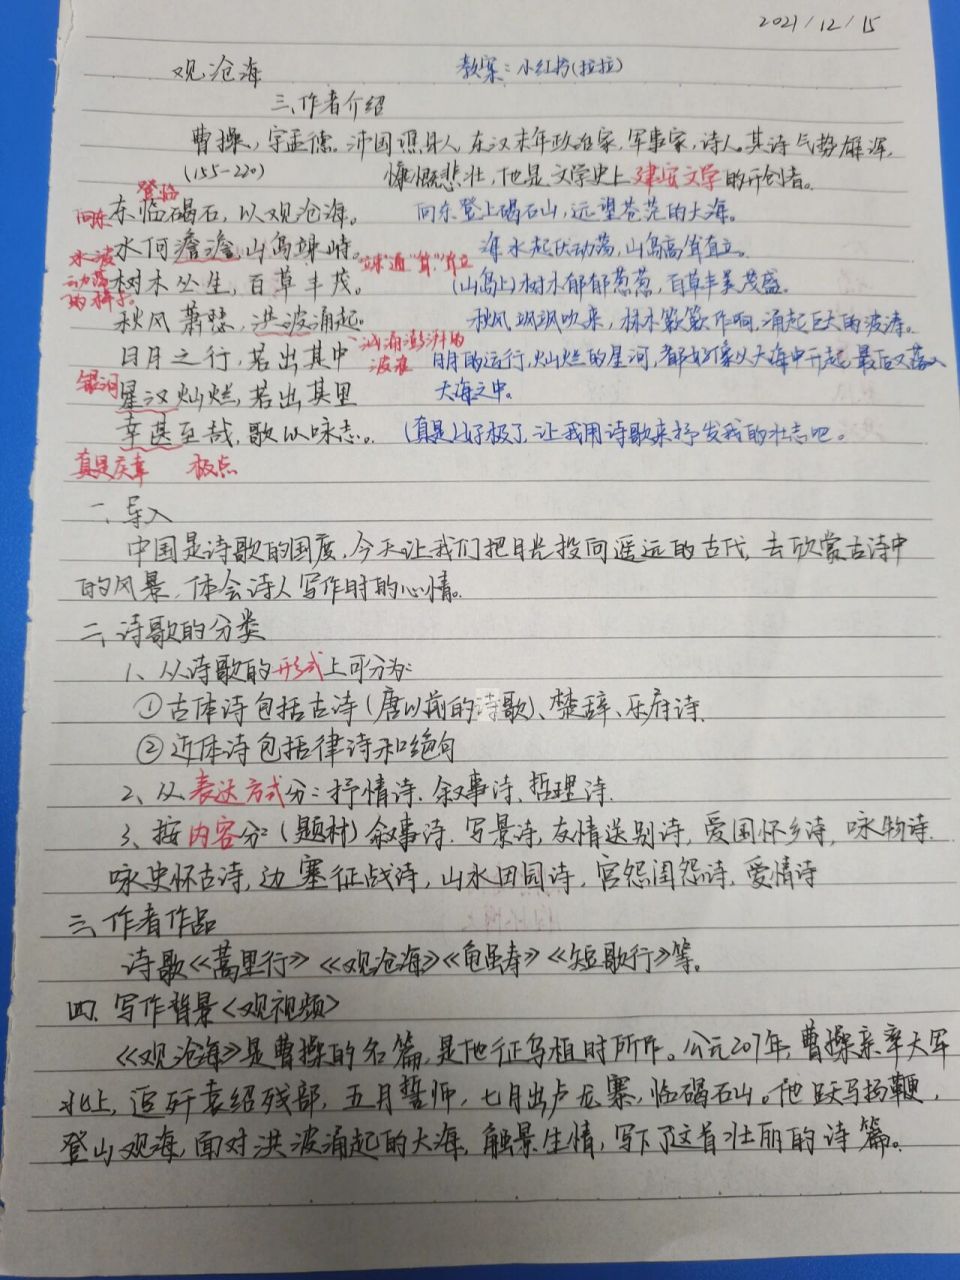 2021/12/15
观沧海 教案：小红书(拉拉)
三、作者介绍
曹操，字孟德。沛国谯县人，东汉末年政治家，军事家，诗人。其诗气势雄浑，
(155-220) 慷慨悲壮，他是文学史上建安文学的开创者。
登临
向东 东临碣石，以观沧海。 向东登上碣石山，远望苍茫的大海。
水波 水何澹澹，山岛竦峙。 海水起伏动荡，山岛高耸直立。
动荡 "竦"通"耸"耸立
的样子。 树木丛生，百草丰茂。 (山岛上)树木郁郁葱葱，百草丰美茂盛。
秋风萧瑟，洪波涌起。 秋风飒飒吹来，林木簌簌作响，涌起巨大的波涛。
汹涌澎湃的
波浪
日月之行，若出其中 日月的运行，灿烂的星河，都好像从大海中升起，最后又落入
银河 星汉灿烂，若出其里 大海之中。
幸甚至哉，歌以咏志。 (真是)好极了，让我用诗歌来抒发我的壮志吧。
真是庆幸 极点
一、导入
中国是诗歌的国度，今天让我们把目光投向遥远的古代，去欣赏古诗中
的风景，体会诗人写作时的心情。
二、诗歌的分类
1、从诗歌的形式上可分为：
①古体诗包括古诗(唐以前的诗歌)、楚辞、乐府诗.
②近体诗包括律诗和绝句
2、从表达方式分：抒情诗、叙事诗、哲理诗.
3、按内容分：(题材)叙事诗.写景诗，友情送别诗，爱国怀乡诗，咏物诗.
咏史怀古诗，边塞征战诗，山水田园诗，宫怨闺怨诗，爱情诗
三、作者作品
诗歌《蒿里行》《观沧海》《龟虽寿》《短歌行》等。
四、写作背景<观视频>
《观沧海》是曹操的名篇，是他征乌桓时所作。公元207年，曹操亲率大军
北上，追歼袁绍残部，五月誓师，七月出卢龙寨，临碣石山。他跃马扬鞭，
登山观海，面对洪波涌起的大海，触景生情，写下了这首壮丽的诗篇。